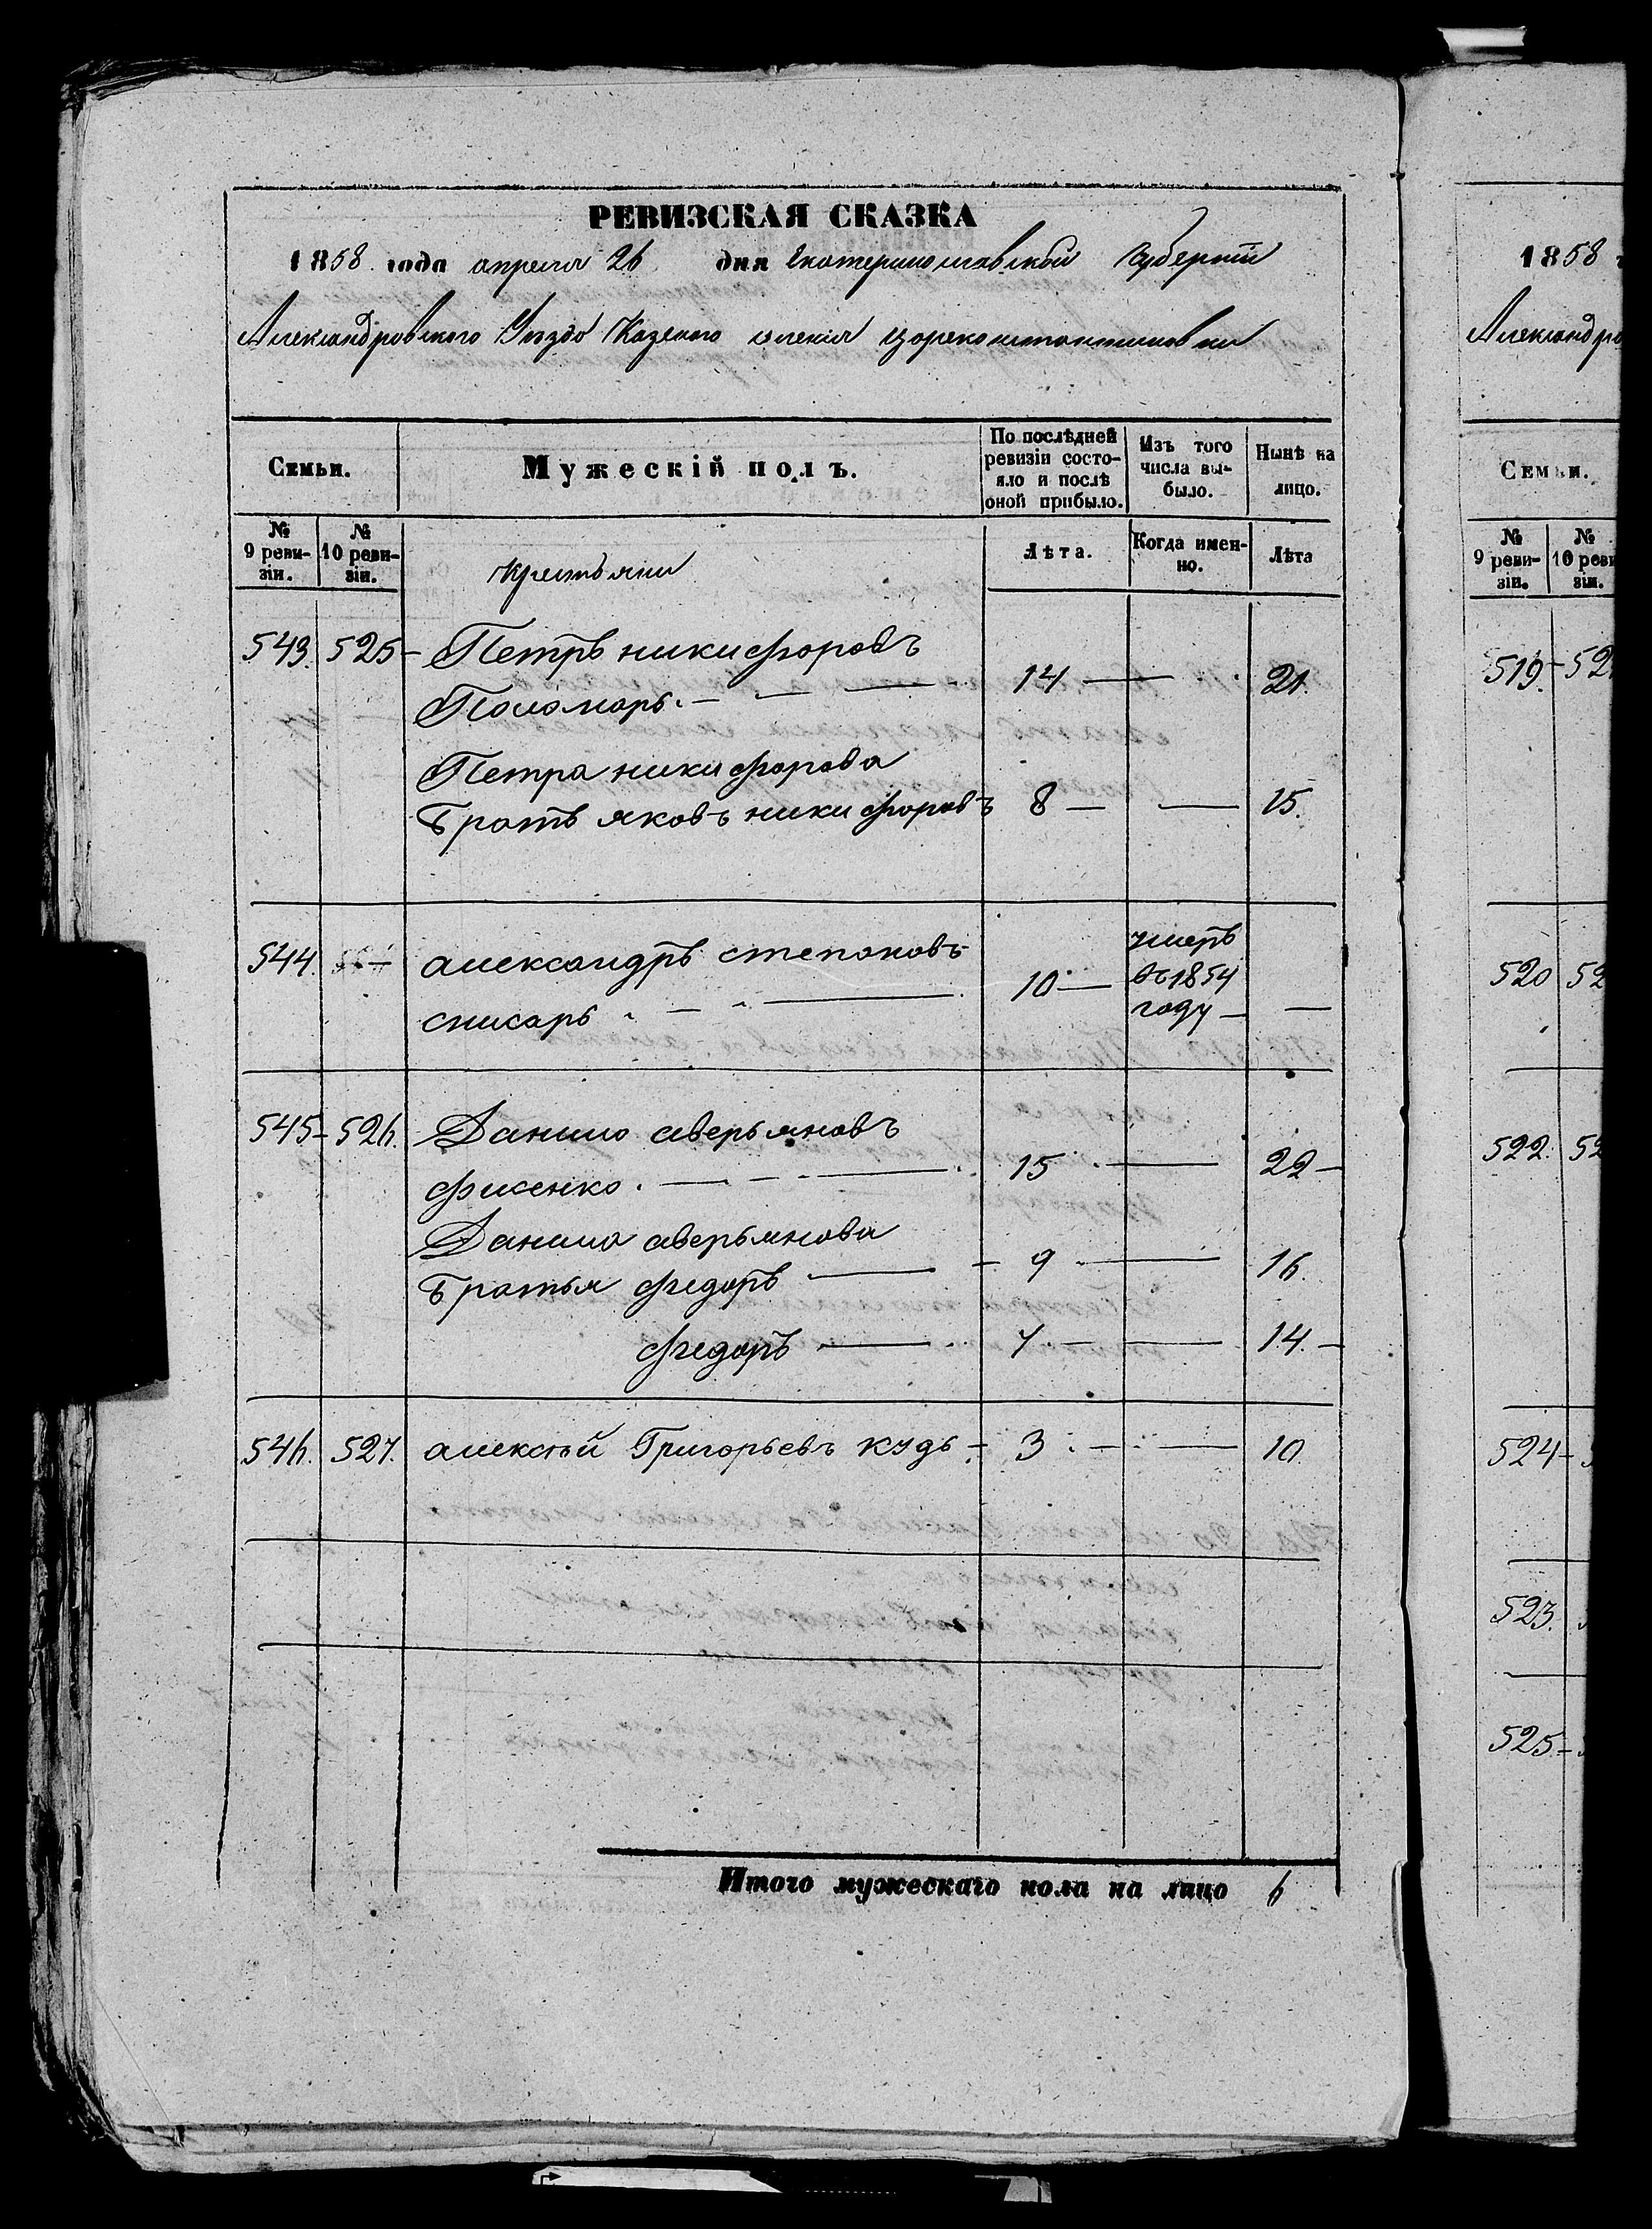 РЕВИЗСКАЯ СКАЗКА
1858 года апреля 26 дня Екатеринославской Губернии
Александровского Уезда Казеного селения Цареконстантиновки
Семьи.
Мужескій полъ.
По послѣдней ревизіи состо-яло и послѣ оной прибыло.
Изъ того числа вы-было.
Нынѣ на лицо.
№ 9 реви-зіи.
№ 10 реви-зіи.
крестьяни
Лѣта.
Когда имен-но.
Лѣта
543. 525 - Петръ никифоровъ
Пономарь. - 14 - 21.
Петра никифорова
братъ яковъ никифоровъ 8 - 15.
544. александръ степановъ
слисарь 10 - умеръ въ 1854 году -
545 - 526. Данило аверьяновъ
фисенко. - 15 - 22 -
Данила аверьянова
братья федоръ - 9 - 16.
федоръ - 7 - 14. -
546. 527. алексѣй Григорьевъ кудь - 3 - 10.
Итого мужескаго пола на лицо 6
1858
Александро
Семьи.
№ 9 реви-зіи.
№ 10 реви зіи.
519. - 52
520 52
522. 52
524 -
523.
525 -